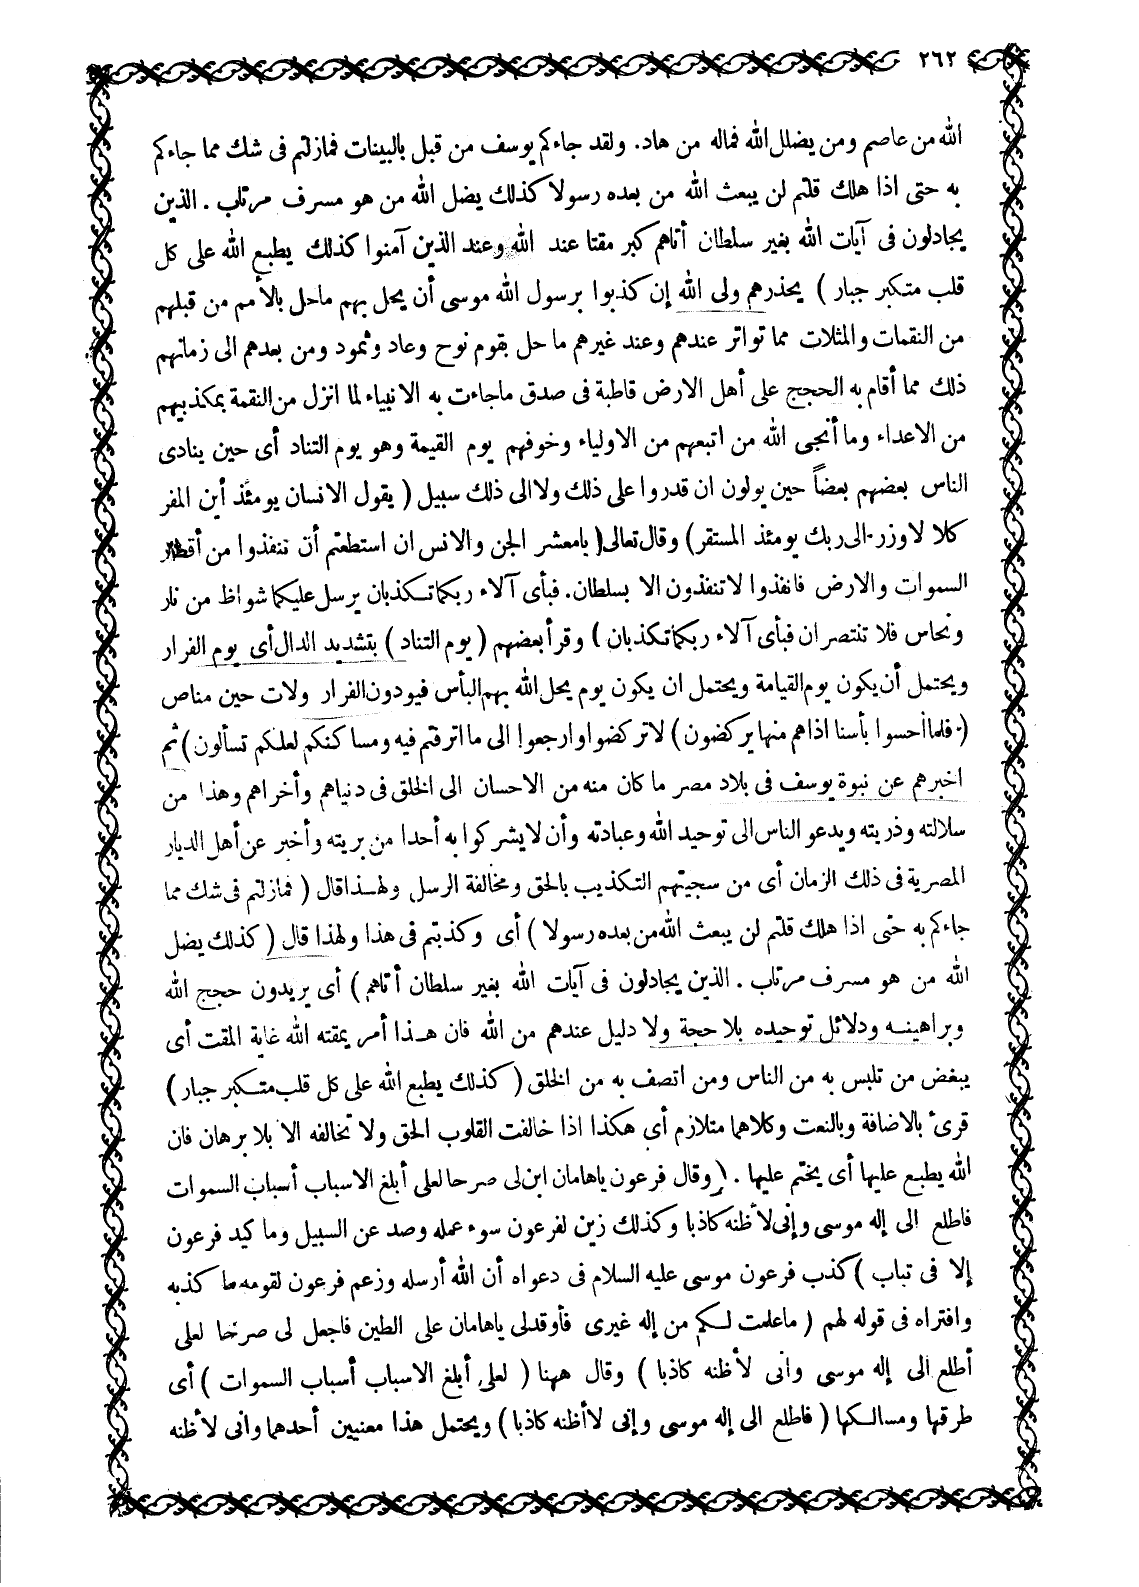 ٢٦٢
الله من عاصم ومن يضلل الله فماله من هاد. ولقد جاءكم يوسف من قبل بالبينات فمازلتم فى شك مما جاءكم
به حتى اذا هلك قلتم لن يبعث الله من بعده رسولا كذلك يضل الله من هو مسرف مرتاب . الذين
يجادلون فى آيات الله بغير سلطان أتاهم كبر مقتا عند الله وعند الذين آمنوا كذلك يطبع الله على كل
قلب متكبر جبار ) يحذرهم ولى الله إن كذبوا برسول الله موسى أن يحل بهم ماحل بالأمم من قبلهم
من النقمات والمثلات مما تواتر عندهم وعند غيرهم ما حل بقوم نوح وعاد وثمود ومن بعدهم الى زمانهم
ذلك مما أقام به الحجج على أهل الارض قاطبة فى صدق ماجاءت به الانبياء لما انزل من النقمة بمكذبيهم
من الاعداء وما أنجى الله من اتبعهم من الاولياء وخوفهم يوم القيمة وهو يوم التناد أى حين ينادى
الناس بعضهم بعضاً حين يولون ان قدروا على ذلك ولا الى ذلك سبيل ( يقول الانسان يومئذ أين المفر
كلا لاوزر الى ربك يومئذ المستقر) وقال تعالى ( يامعشر الجن والانس ان استطعتم أن تنفذوا من أقطار
السموات والارض فانفذوا لاتنفذون الا بسلطان. فبأى آلاء ربكما تكذبان يرسل عليكما شواظ من نار
ونحاس فلا تنتصران فبأى آلاء ربكما تكذبان ) وقرأ بعضهم ( يوم التناد ) بتشديد الدال أى يوم الفرار
ويحتمل أن يكون يوم القيامة ويحتمل ان يكون يوم يحل الله بهم البأس فيودون الفرار ولات حين مناص
( فلما أحسوا بأسنا اذاهم منها يركضون ) لاتركضوا وارجعوا الى ما اترفتم فيه ومساكنكم لعلكم تسألون ) ثم
اخبرهم عن نبوة يوسف فى بلاد مصر ما كان منه من الاحسان الى الخلق فى دنياهم وأخراهم وهذا من
سلالته وذريته ويدعو الناس الى توحيد الله وعبادته وأن لايشركوا به أحدا من بريته وأخبر عن أهل الديار
المصرية فى ذلك الزمان أى من سجيتهم التكذيب بالحق ومخالفة الرسل ولهذا قال ( فمازلتم فى شك مما
جاءكم به حتى اذا هلك قلتم لن يبعث الله من بعده رسولا ) أى وكذبتم فى هذا ولهذا قال ( كذلك يضل
الله من هو مسرف مرتاب . الذين يجادلون فى آيات الله بغير سلطان أتاهم ) أى يريدون حجج الله
وبراهينه ودلائل توحيده بلا حجة ولا دليل عندهم من الله فان هذا أمر يمقته الله غاية المقت أى
يبغض من تلبس به من الناس ومن اتصف به من الخلق ( كذلك يطبع الله على كل قلب متكبر جبار )
قرئ بالاضافة وبالنعت وكلاهما متلازم أى هكذا اذا خالفت القلوب الحق ولا تخالفه الا بلا برهان فان
الله يطبع عليها أى يختم عليها . ( وقال فرعون ياهامان ابن لى صرحا لعلى أبلغ الاسباب أسباب السموات
فاطلع الى إله موسى وإنى لأظنه كاذبا وكذلك زين لفرعون سوء عمله وصد عن السبيل وما كيد فرعون
إلا فى تباب ) كذب فرعون موسى عليه السلام فى دعواه أن الله أرسله وزعم فرعون لقومه ما كذبه
وافتراه فى قوله لهم ( ماعلمت لكم من إله غيرى فأوقدلى ياهامان على الطين فاجعل لى صرحا لعلى
أطلع الى إله موسى وانى لأظنه كاذبا ) وقال ههنا ( لعلى أبلغ الاسباب أسباب السموات ) أى
طرقها ومسالكها ( فاطلع الى إله موسى وإنى لأظنه كاذبا ) ويحتمل هذا معنيين أحدهما وانى لأظنه